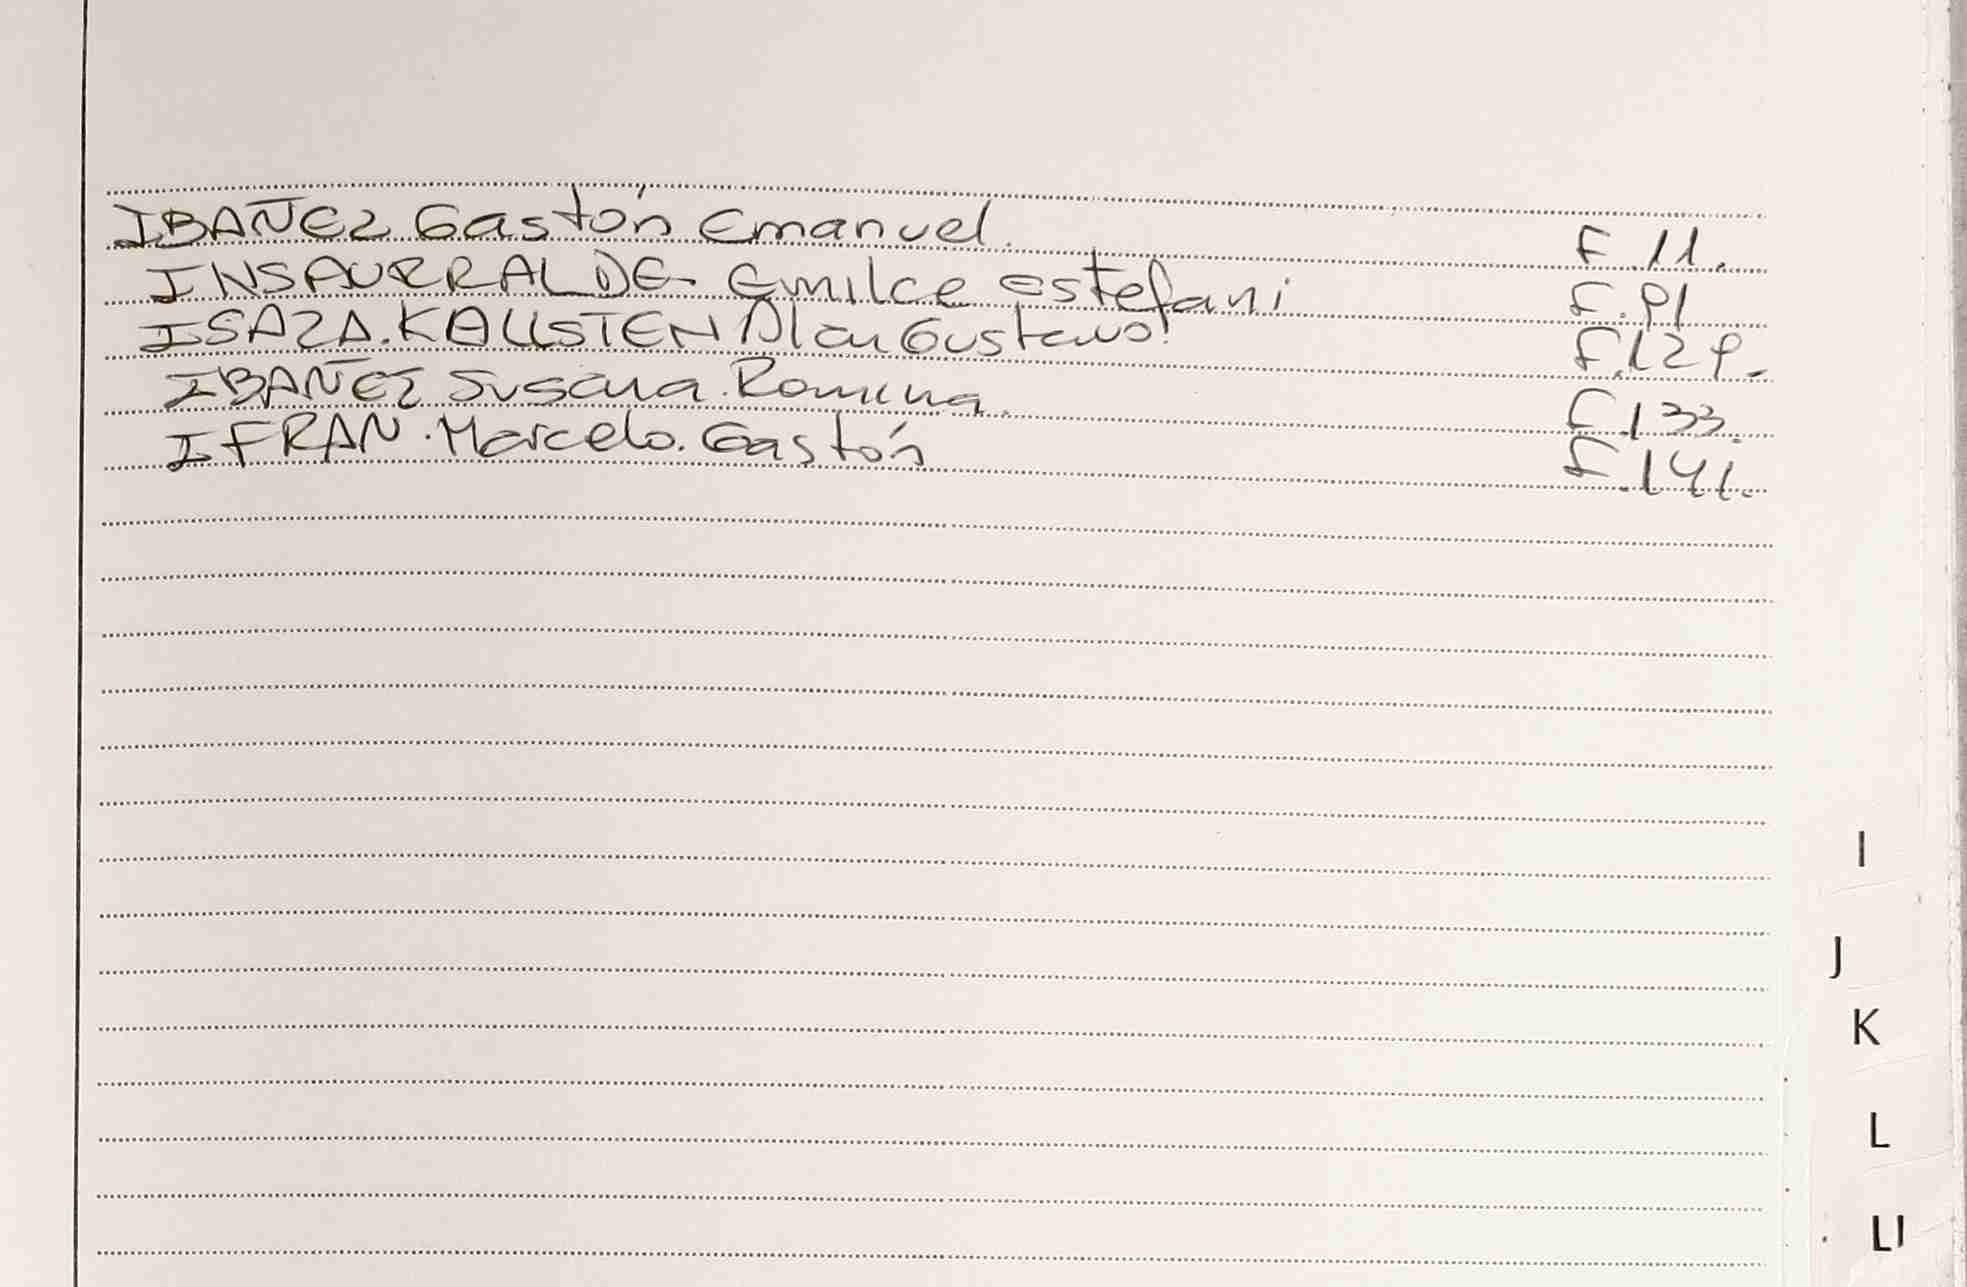 IBAÑEZ Gastón Emanuel. F.11.
INSAURRALDE Emilce Estefani F.91
ISAZA.KALLSTEN Alan Gustavo. F.129.
IBAÑEZ Susana.Romina. F.133.
IFRAN.Marcelo.Gastón F.141.
I
J
K
L
Ll